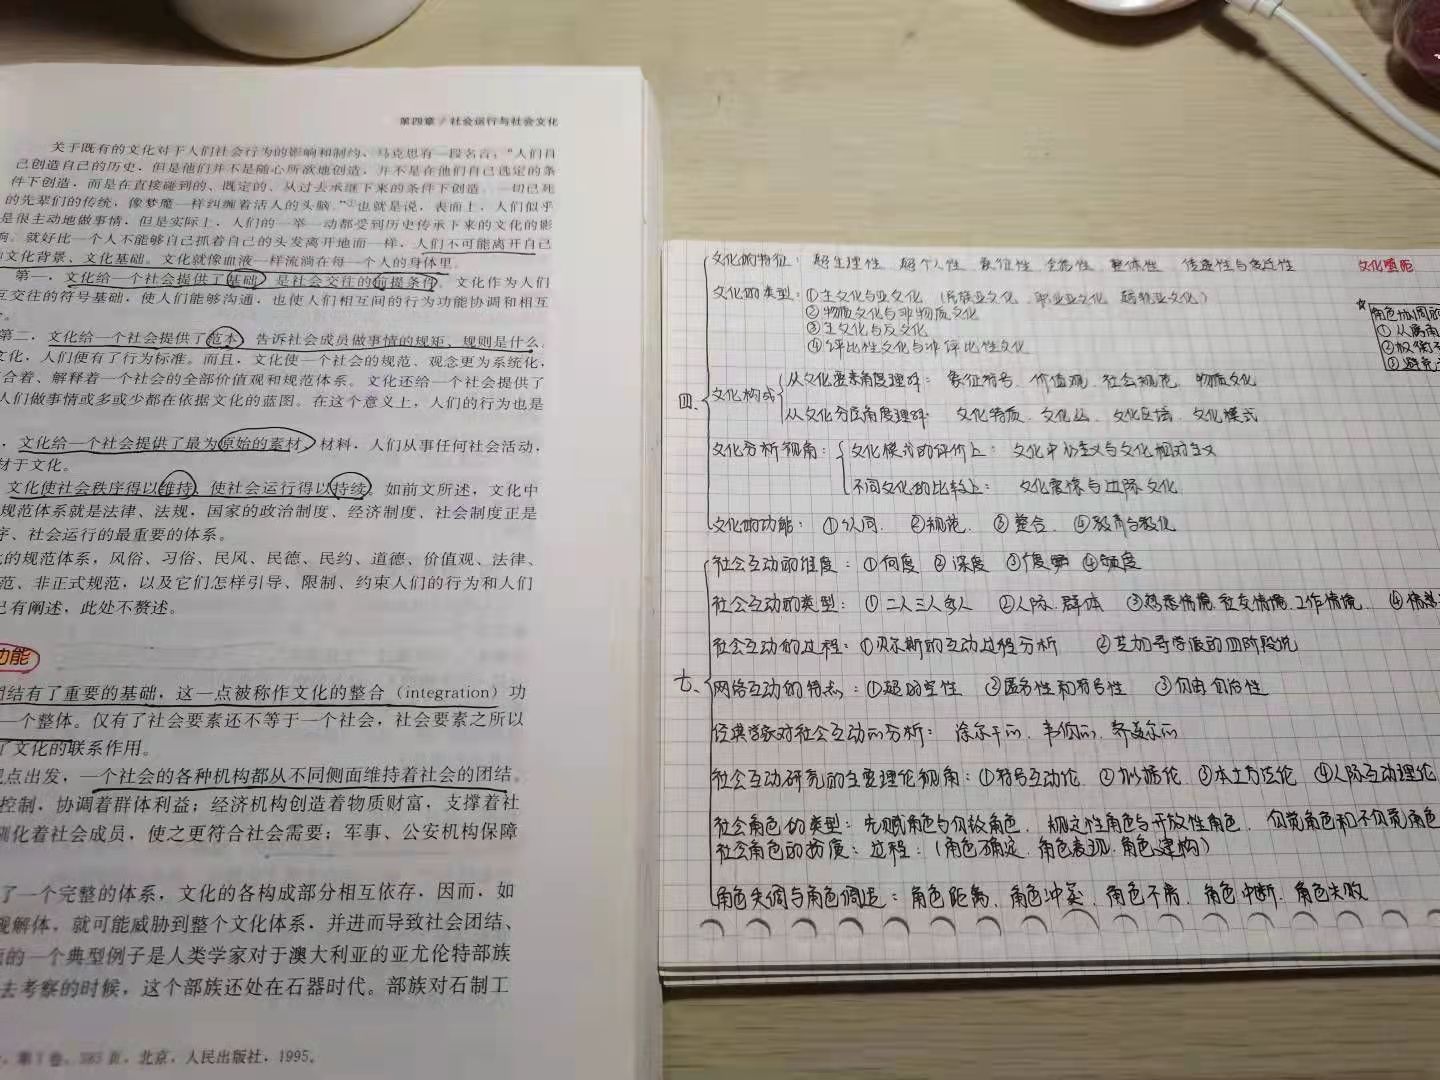 第四章 / 社会运行与社会文化
关于既有的文化对于人们社会行为的影响和制约，马克思有一段名言：“人们自
己创造自己的历史，但是他们并不是随心所欲地创造，并不是在他们自己选定的条
件下创造，而是在直接碰到的、既定的、从过去承继下来的条件下创造。一切已死
的先辈们的传统，像梦魔一样纠缠着活人的头脑。”①也就是说，表面上，人们似乎
是很主动地做事情，但是实际上，人们的一举一动都受到历史传承下来的文化的影
响。就好比一个人不能够自己抓着自己的头发离开地面一样，人们不可能离开自己
的文化背景、文化基础。文化就像血液一样流淌在每一个人的身体里。
第一，文化给一个社会提供了基础，是社会交往的前提条件。文化作为人们
互交往的符号基础，使人们能够沟通，也使人们相互间的行为功能协调和相互
第二，文化给一个社会提供了范本，告诉社会成员做事情的规矩、规则是什么。
文化，人们便有了行为标准。而且，文化使一个社会的规范、观念更为系统化，
合着、解释着一个社会的全部价值观和规范体系。文化还给一个社会提供了
人们做事情或多或少都在依据文化的蓝图。在这个意义上，人们的行为也是
，文化给一个社会提供了最为原始的素材、材料，人们从事任何社会活动，
材于文化。
文化使社会秩序得以维持，使社会运行得以持续。如前文所述，文化中
规范体系就是法律、法规，国家的政治制度、经济制度、社会制度正是
序、社会运行的最重要的体系。
的规范体系，风俗、习俗、民风、民德、民约、道德、价值观、法律、
范、非正式规范，以及它们怎样引导、限制、约束人们的行为和人们
已有阐述，此处不赘述。
功能
团结有了重要的基础，这一点被称作文化的整合（integration）功
一个整体。仅有了社会要素还不等于一个社会，社会要素之所以
了文化的联系作用。
点出发，一个社会的各种机构都从不同侧面维持着社会的团结。
控制，协调着群体利益；经济机构创造着物质财富，支撑着社
驯化着社会成员，使之更符合社会需要；军事、公安机构保障
了一个完整的体系，文化的各构成部分相互依存，因而，如
现解体，就可能威胁到整个文化体系，并进而导致社会团结、
的一个典型例子是人类学家对于澳大利亚的亚尤伦特部族
去考察的时候，这个部族还处在石器时代。部族对石制工
第1卷，585页，北京，人民出版社，1995。
四、
文化的特征：超生理性 超个人性 象征性 全态性 整体性 传递性与变迁性
文化的类型：①主文化与亚文化（民族亚文化、职业亚文化、越轨亚文化）
②物质文化与非物质文化
③主文化与反文化
④评比性文化与非评比性文化
文化构成
从文化要素角度理解：象征符号、价值观、社会规范、物质文化
从文化分层角度理解：文化特质、文化丛、文化区域、文化模式
文化分析视角：
文化模式的评价上：文化中心主义与文化相对主义
不同文化的比较上：文化震惊与边际文化
文化的功能：①认同 ②规范 ③整合 ④教育与教化
文化堕距
☆
角色协调
①从属
②权衡
③避免
七、
社会互动的维度：①向度 ②深度 ③广度 ④频度
社会互动的类型：①二人三人多人 ②人际.群体 ③熟悉情境.社交情境.工作情境 ④情感
社会互动的过程：①贝尔斯的互动过程分析 ②芝加哥学派的四阶段说
网络互动的特点：①超时空性 ②匿名性和符号性 ③自由自后性
经典学家对社会互动的分析：涂尔干的、韦伯的、齐美尔的
社会互动研究的主要理论视角：①符号互动论 ②拟剧论 ③本土方法论 ④人际互动理论
社会角色的类型：先赋角色与自致角色、规定性角色与开放性角色、自觉角色和不自觉角色
社会角色的扮演：过程：（角色确定、角色表现、角色建构）
角色失调与角色调适：角色距离、角色冲突、角色不清、角色中断、角色失败